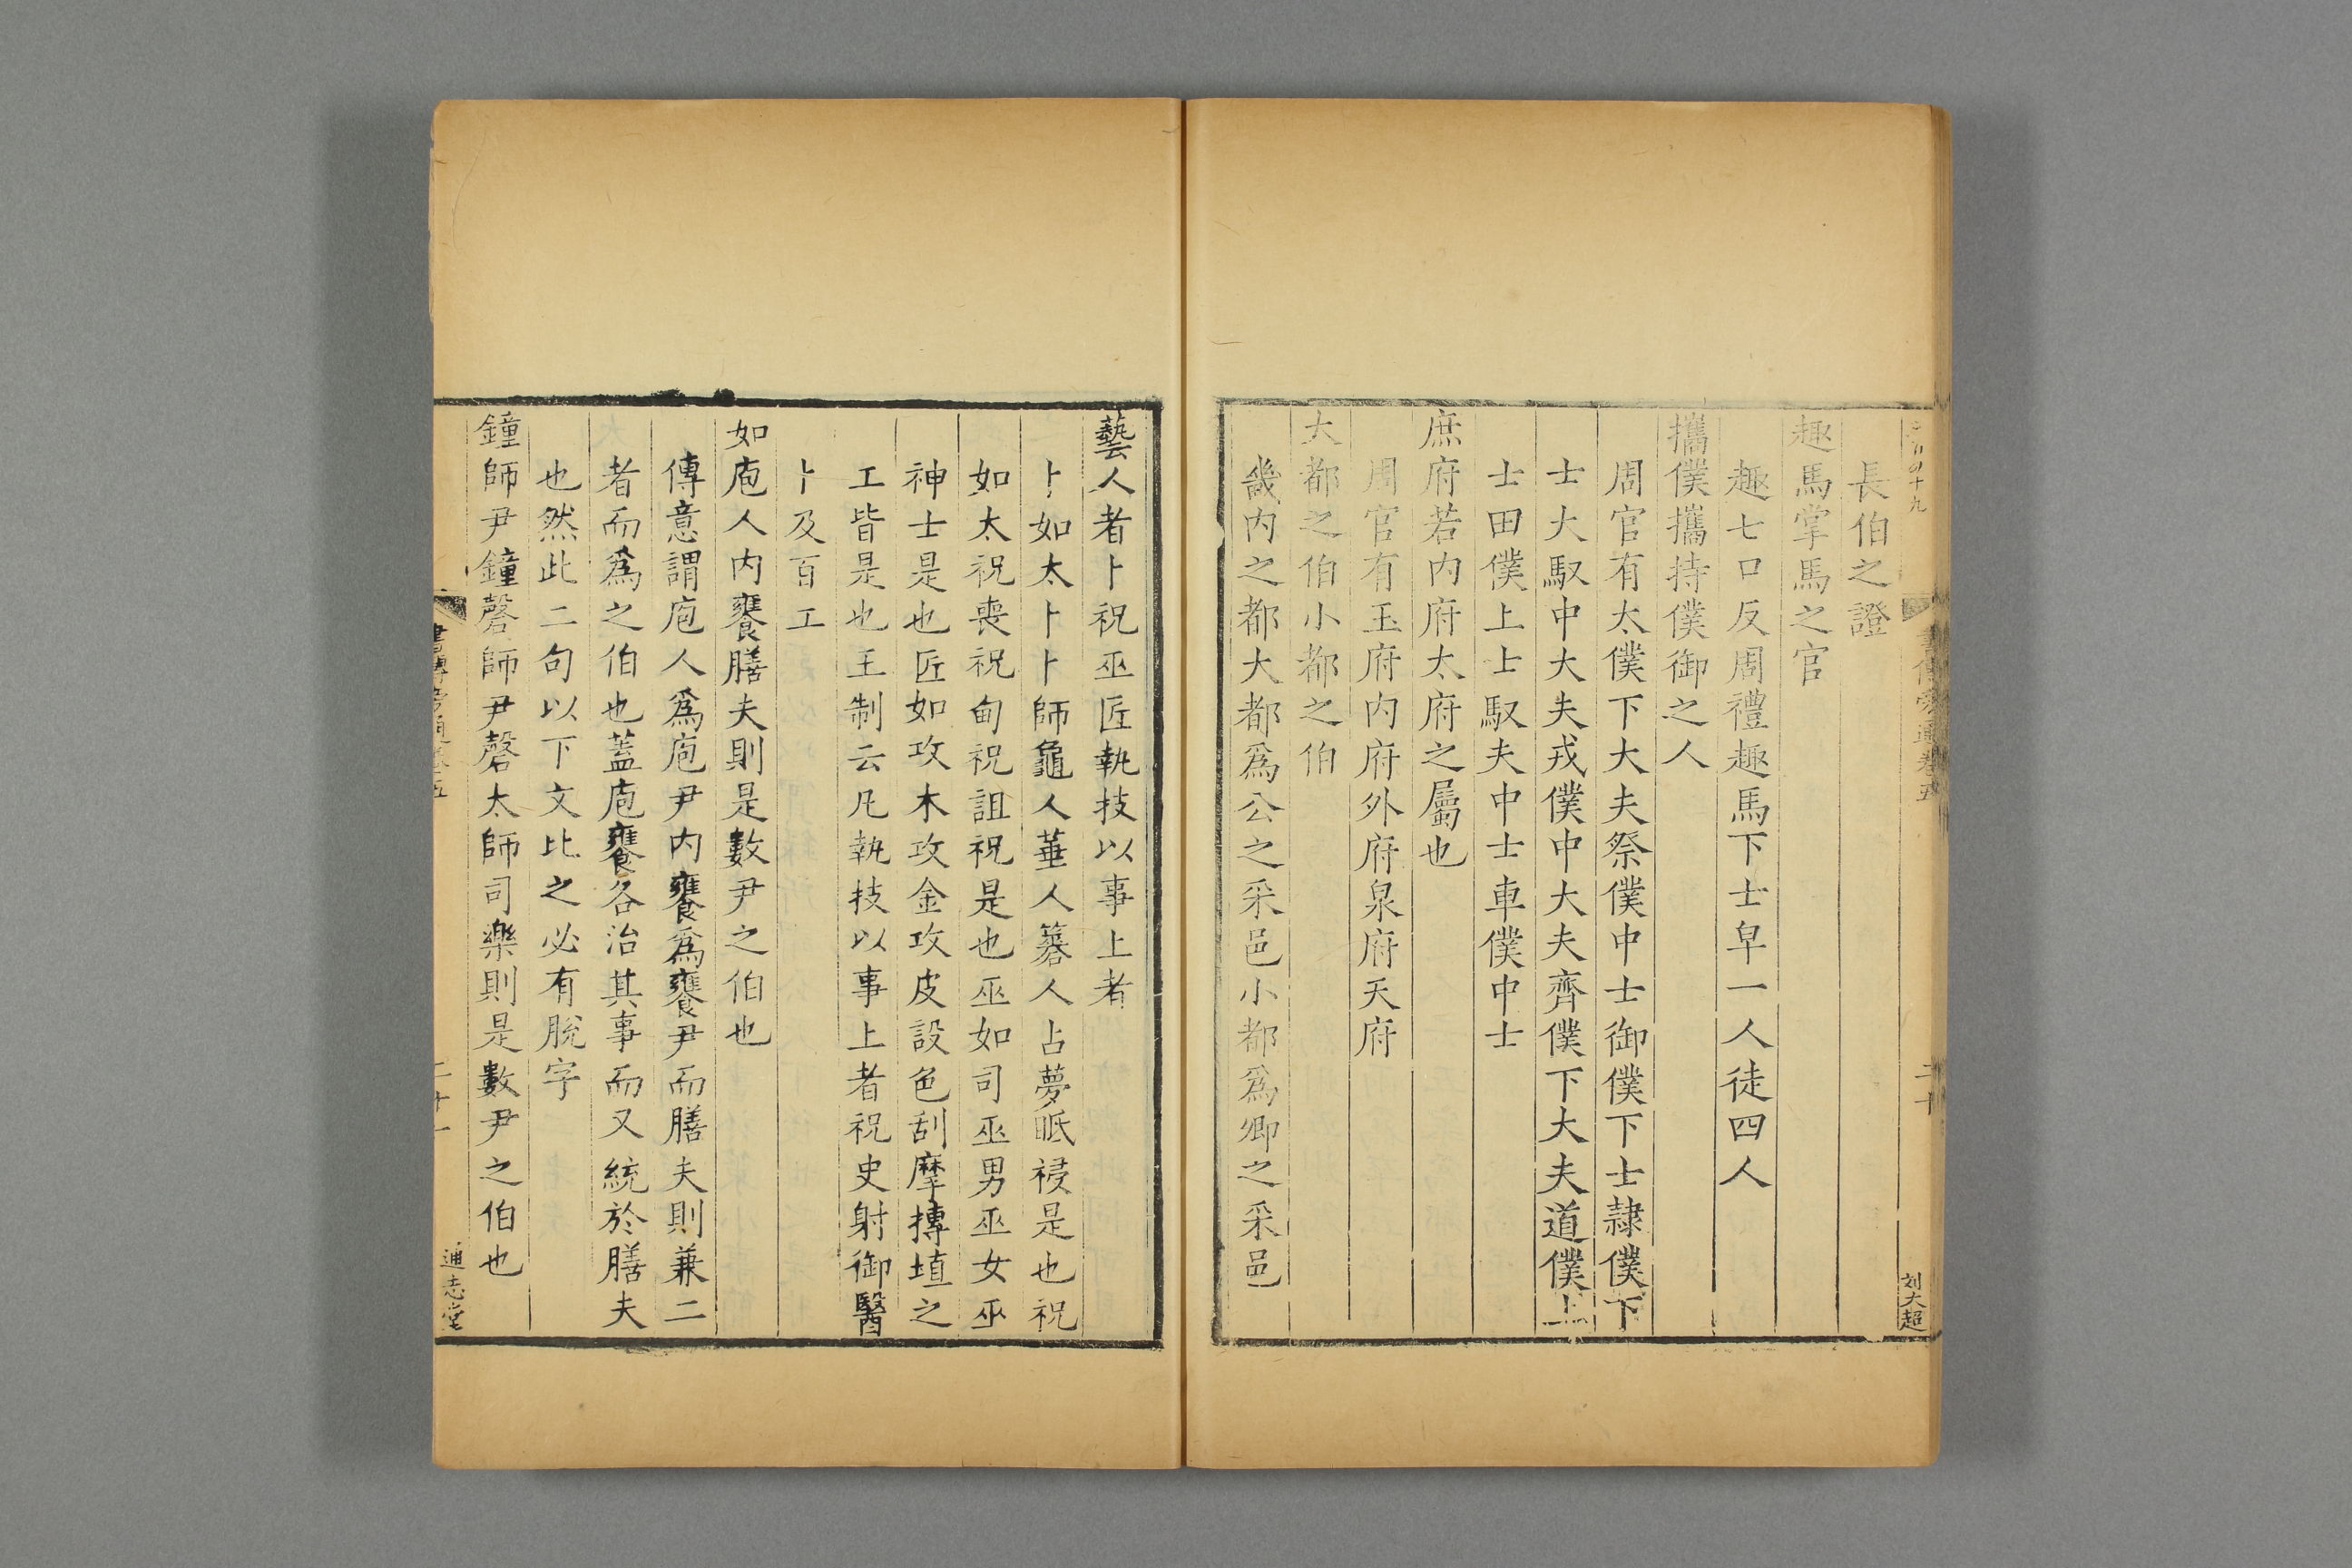 長伯之證
趣馬掌馬之官
趣七口反周禮趣馬下士皁一人徒四人
攜僕攜持僕御之人
周官有太僕下大夫祭僕中士御僕下士隷僕下
士大馭中大夫戎僕中大夫齊僕下大夫道僕上
士田僕上士馭夫中士車僕中士
庶府若内府太府之屬也
周官有玉府内府外府泉府天府
大都之伯小都之伯
畿内之都大都爲公之采邑小都爲卿之采邑
藝人者卜祝巫匠執技以事上者
卜如太卜卜師龜人菙人簭人占夢眂祲是也祝
如太祝喪祝甸祝詛祝是也巫如司巫男巫女巫
神士是也匠如攻木攻金攻皮設色刮摩摶埴之
工皆是也王制云凡執技以事上者祝史射御醫
卜及百工
如庖人内饔膳夫則是數尹之伯也
傳意謂庖人爲庖尹内饔爲饔尹而膳夫則兼二
者而爲之伯也蓋庖饔各治其事而又統於膳夫
也然此二句以下文比之必有脫字
鐘師尹鐘磬師尹磬太師司樂則是數尹之伯也
二百四十九
書傳旁通卷五
二十
刘大超
書傳旁通卷五
二十一
通志堂